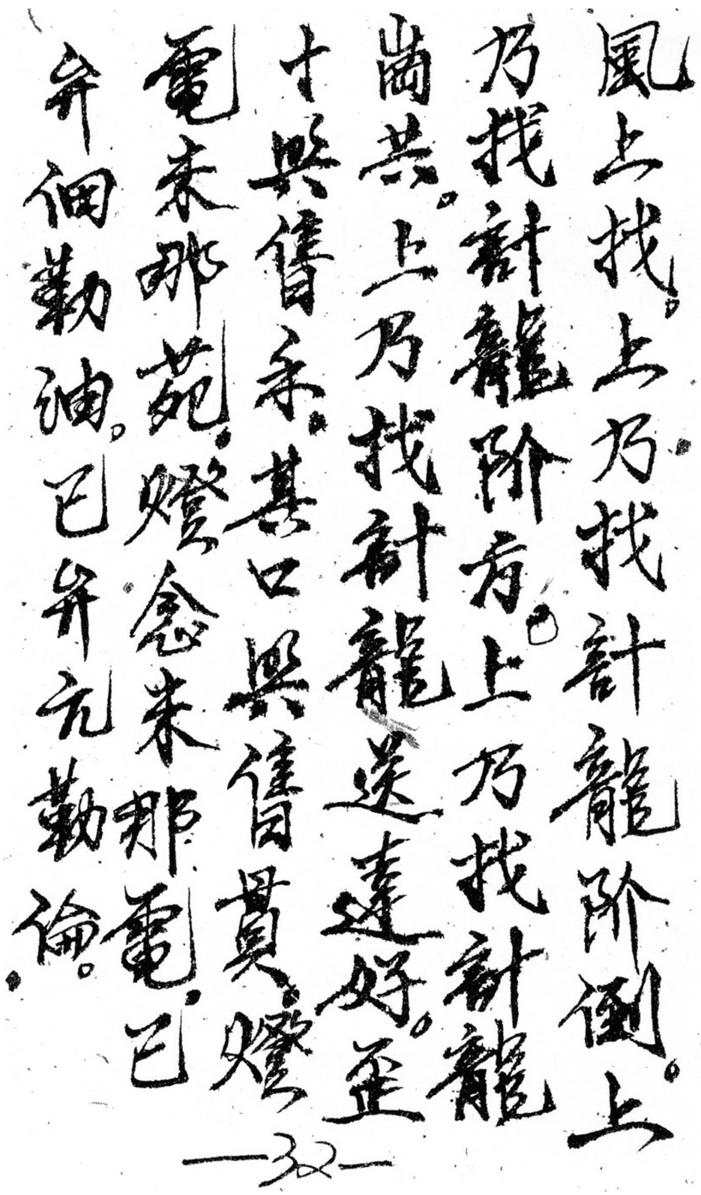 風上找。上乃找計龍阶倒。上
乃找計龍阶方。上乃找計龍
崗共。上乃找計龍送達好。歪
十與售禾。其口與售貫。燈
電未那苑。燈念未那電。已
弁佃勒油。已弁亢勒倫。
—32—